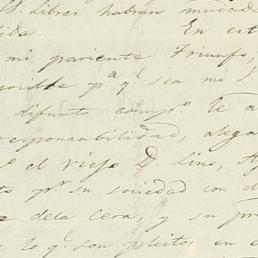 S. Libres habran mudado
dida. En est
mi pariente Triunfo,
posible pª qᵉ sea mi S.
difunto compº. te a
responsabilidad, alega
el viejo D. Lino,
to pʳ su sociedad con
dela Cera, y su pr
lo qᵉ son pleitos en